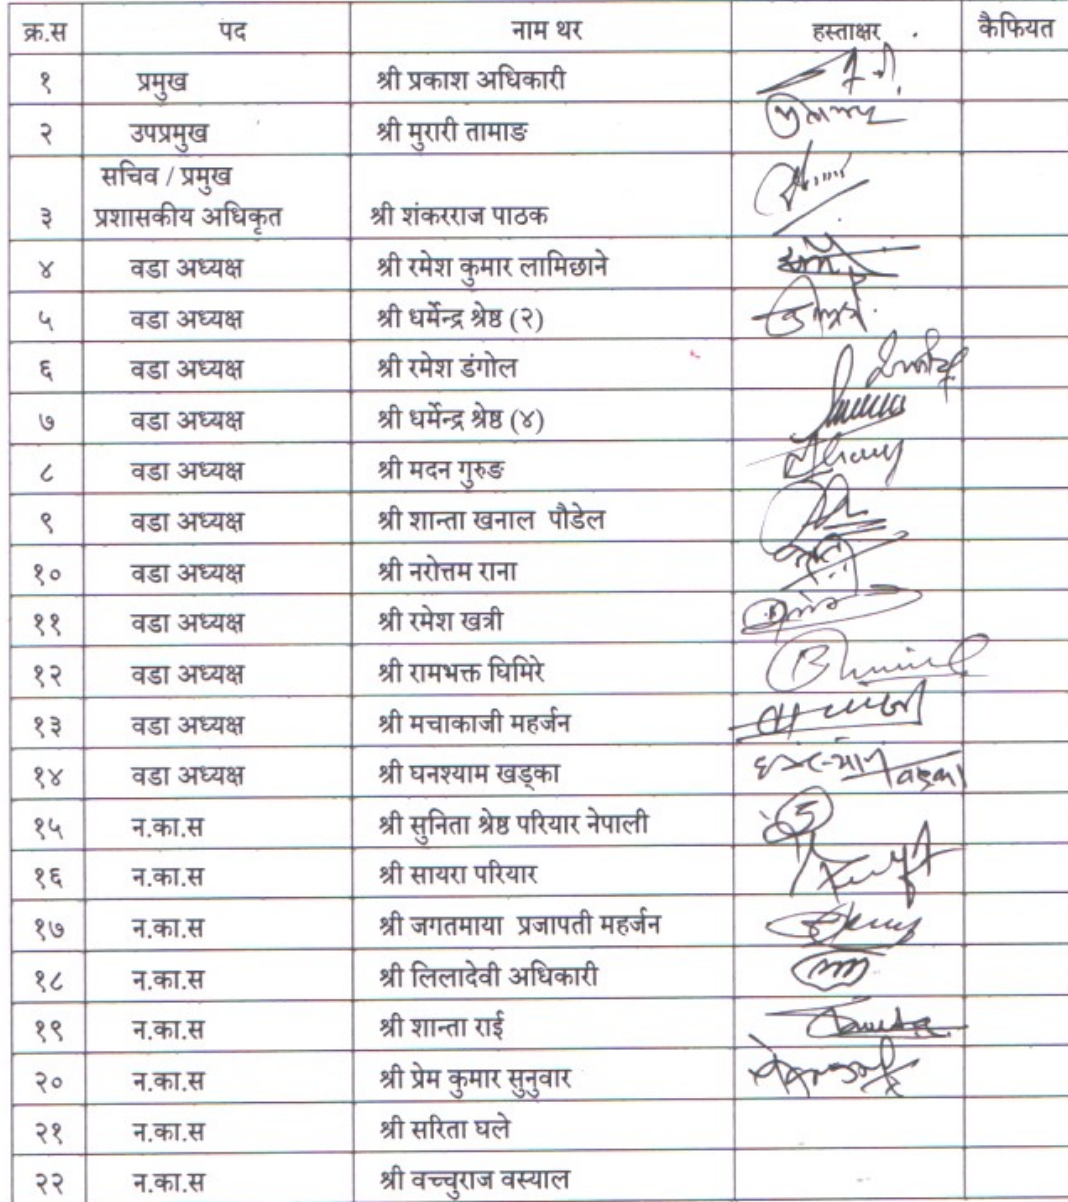 क्र.स पद नाम थर हस्ताक्षर कैफियत
१ प्रमुख श्री प्रकाश अधिकारी
२ उपप्रमुख श्री मुरारी तामाङ
सचिव / प्रमुख
३ प्रशासकीय अधिकृत श्री शंकरराज पाठक
४ वडा अध्यक्ष श्री रमेश कुमार लामिछाने
५ वडा अध्यक्ष श्री धर्मेन्द्र श्रेष्ठ (२)
६ वडा अध्यक्ष श्री रमेश डंगोल
७ वडा अध्यक्ष श्री धर्मेन्द्र श्रेष्ठ (४)
८ वडा अध्यक्ष श्री मदन गुरुङ
९ वडा अध्यक्ष श्री शान्ता खनाल पौडेल
१० वडा अध्यक्ष श्री नरोत्तम राना
११ वडा अध्यक्ष श्री रमेश खत्री
१२ वडा अध्यक्ष श्री रामभक्त घिमिरे
१३ वडा अध्यक्ष श्री मचाकाजी महर्जन
१४ वडा अध्यक्ष श्री घनश्याम खड्का
१५ न.का.स श्री सुनिता श्रेष्ठ परियार नेपाली
१६ न.का.स श्री सायरा परियार
१७ न.का.स श्री जगतमाया प्रजापती महर्जन
१८ न.का.स श्री लिलादेवी अधिकारी
१९ न.का.स श्री शान्ता राई
२० न.का.स श्री प्रेम कुमार सुनुवार
२१ न.का.स श्री सरिता घले
२२ न.का.स श्री वच्चुराज वस्याल